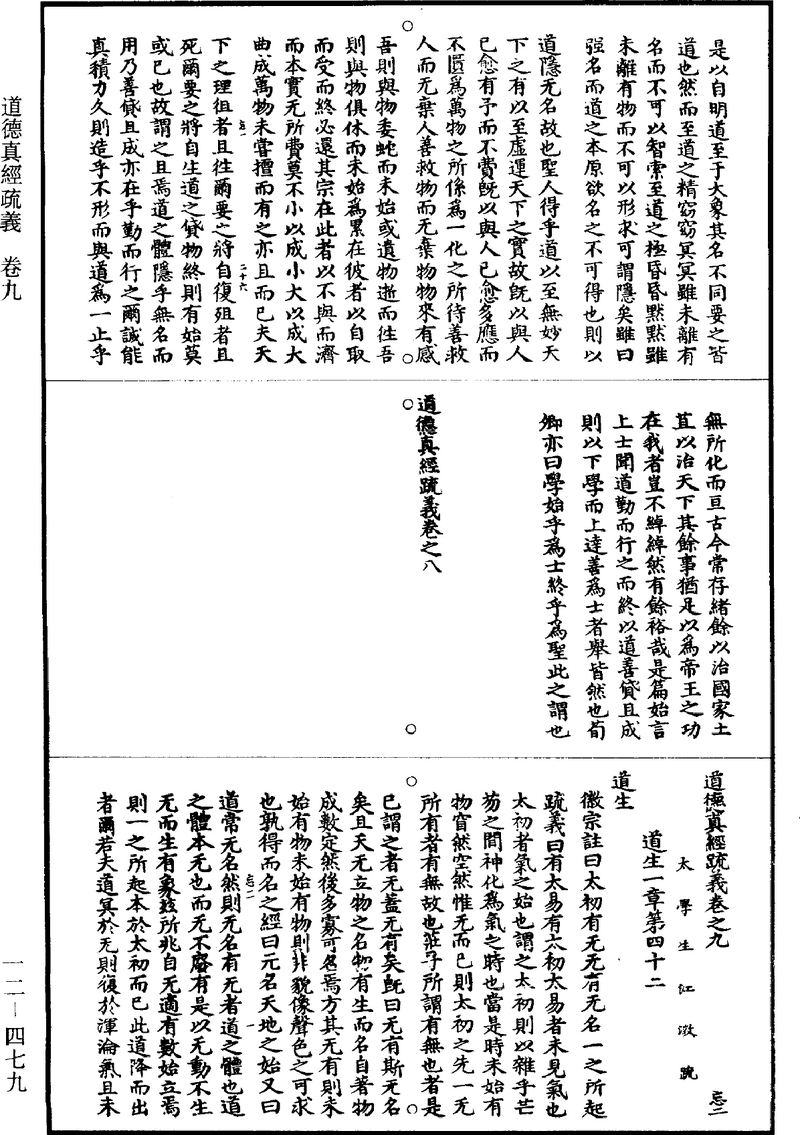 道德真經疏義　卷九
一二—四七九
是以自明道至于大象其名不同要之皆
道也然而至道之精窈窈冥冥雖未離有
名而不可以智索至道之極昏昏默默雖
未離有物而不可以形求可謂隱矣雖曰
强名而道之本原欲名之不可得也則以
道隱无名故也聖人得乎道以至無妙天
下之有以至虛運天下之實故旣以與人
已愈有予而不費旣以與人已愈多應而
不匱爲萬物之所係爲一化之所待善救
人而无棄人善救物而无棄物物來有感
吾則與物委蛇而未始或遺物逝而往吾
則與物俱休而未始爲累在彼者以自取
而受而終必還其宗在此者以不與而濟
而本實无所費莫不小以成小大以成大
曲成萬物未嘗擅而有之亦且而已夫天
下之理徂者且往爾要之將自復殂者且
死爾要之將自生道之貸物終則有始莫
或已也故謂之且焉道之體隱乎無名而
用乃善貸且成亦在乎勤而行之爾誠能
真積力久則造乎不形而與道爲一止乎
無所化而亘古今常存緒餘以治國家土
苴以治天下其餘事猶足以爲帝王之功
在我者豈不綽綽然有餘裕哉是篇始言
上士聞道勤而行之而終以道善貸且成
則以下學而上達善爲士者舉皆然也荀
卿亦曰學始乎爲士終乎爲聖此之謂也
道德真經疏義卷之八
道德真經疏義卷之九
太學生江澂疏
道生一章第四十二
道生一
徽宗註曰太初有无无有无名一之所起
疏義曰有太易有太初太易者未見氣也
太初者氣之始也謂之太初則以雜乎芒
芴之間神化爲氣之時也當是時未始有
物窅然空然惟无而已則太初之先一无
所有者有無故也莊子所謂有無也者是
已謂之者无蓋无有矣旣曰无有斯无名
矣且天无立物之名物有生而名自著物
成數定然後多寡可名焉方其无有則未
始有物未始有物則非貌像聲色之可求
也孰得而名之經曰无名天地之始又曰
道常无名然則无名有无者道之體也道
之體本无也而无不廢有是以无動不生
无而生有象玆所兆自无適有數始立焉
則一之所起本於太初而已此道降而出
者爾若夫道冥於无則復於渾淪氣且未